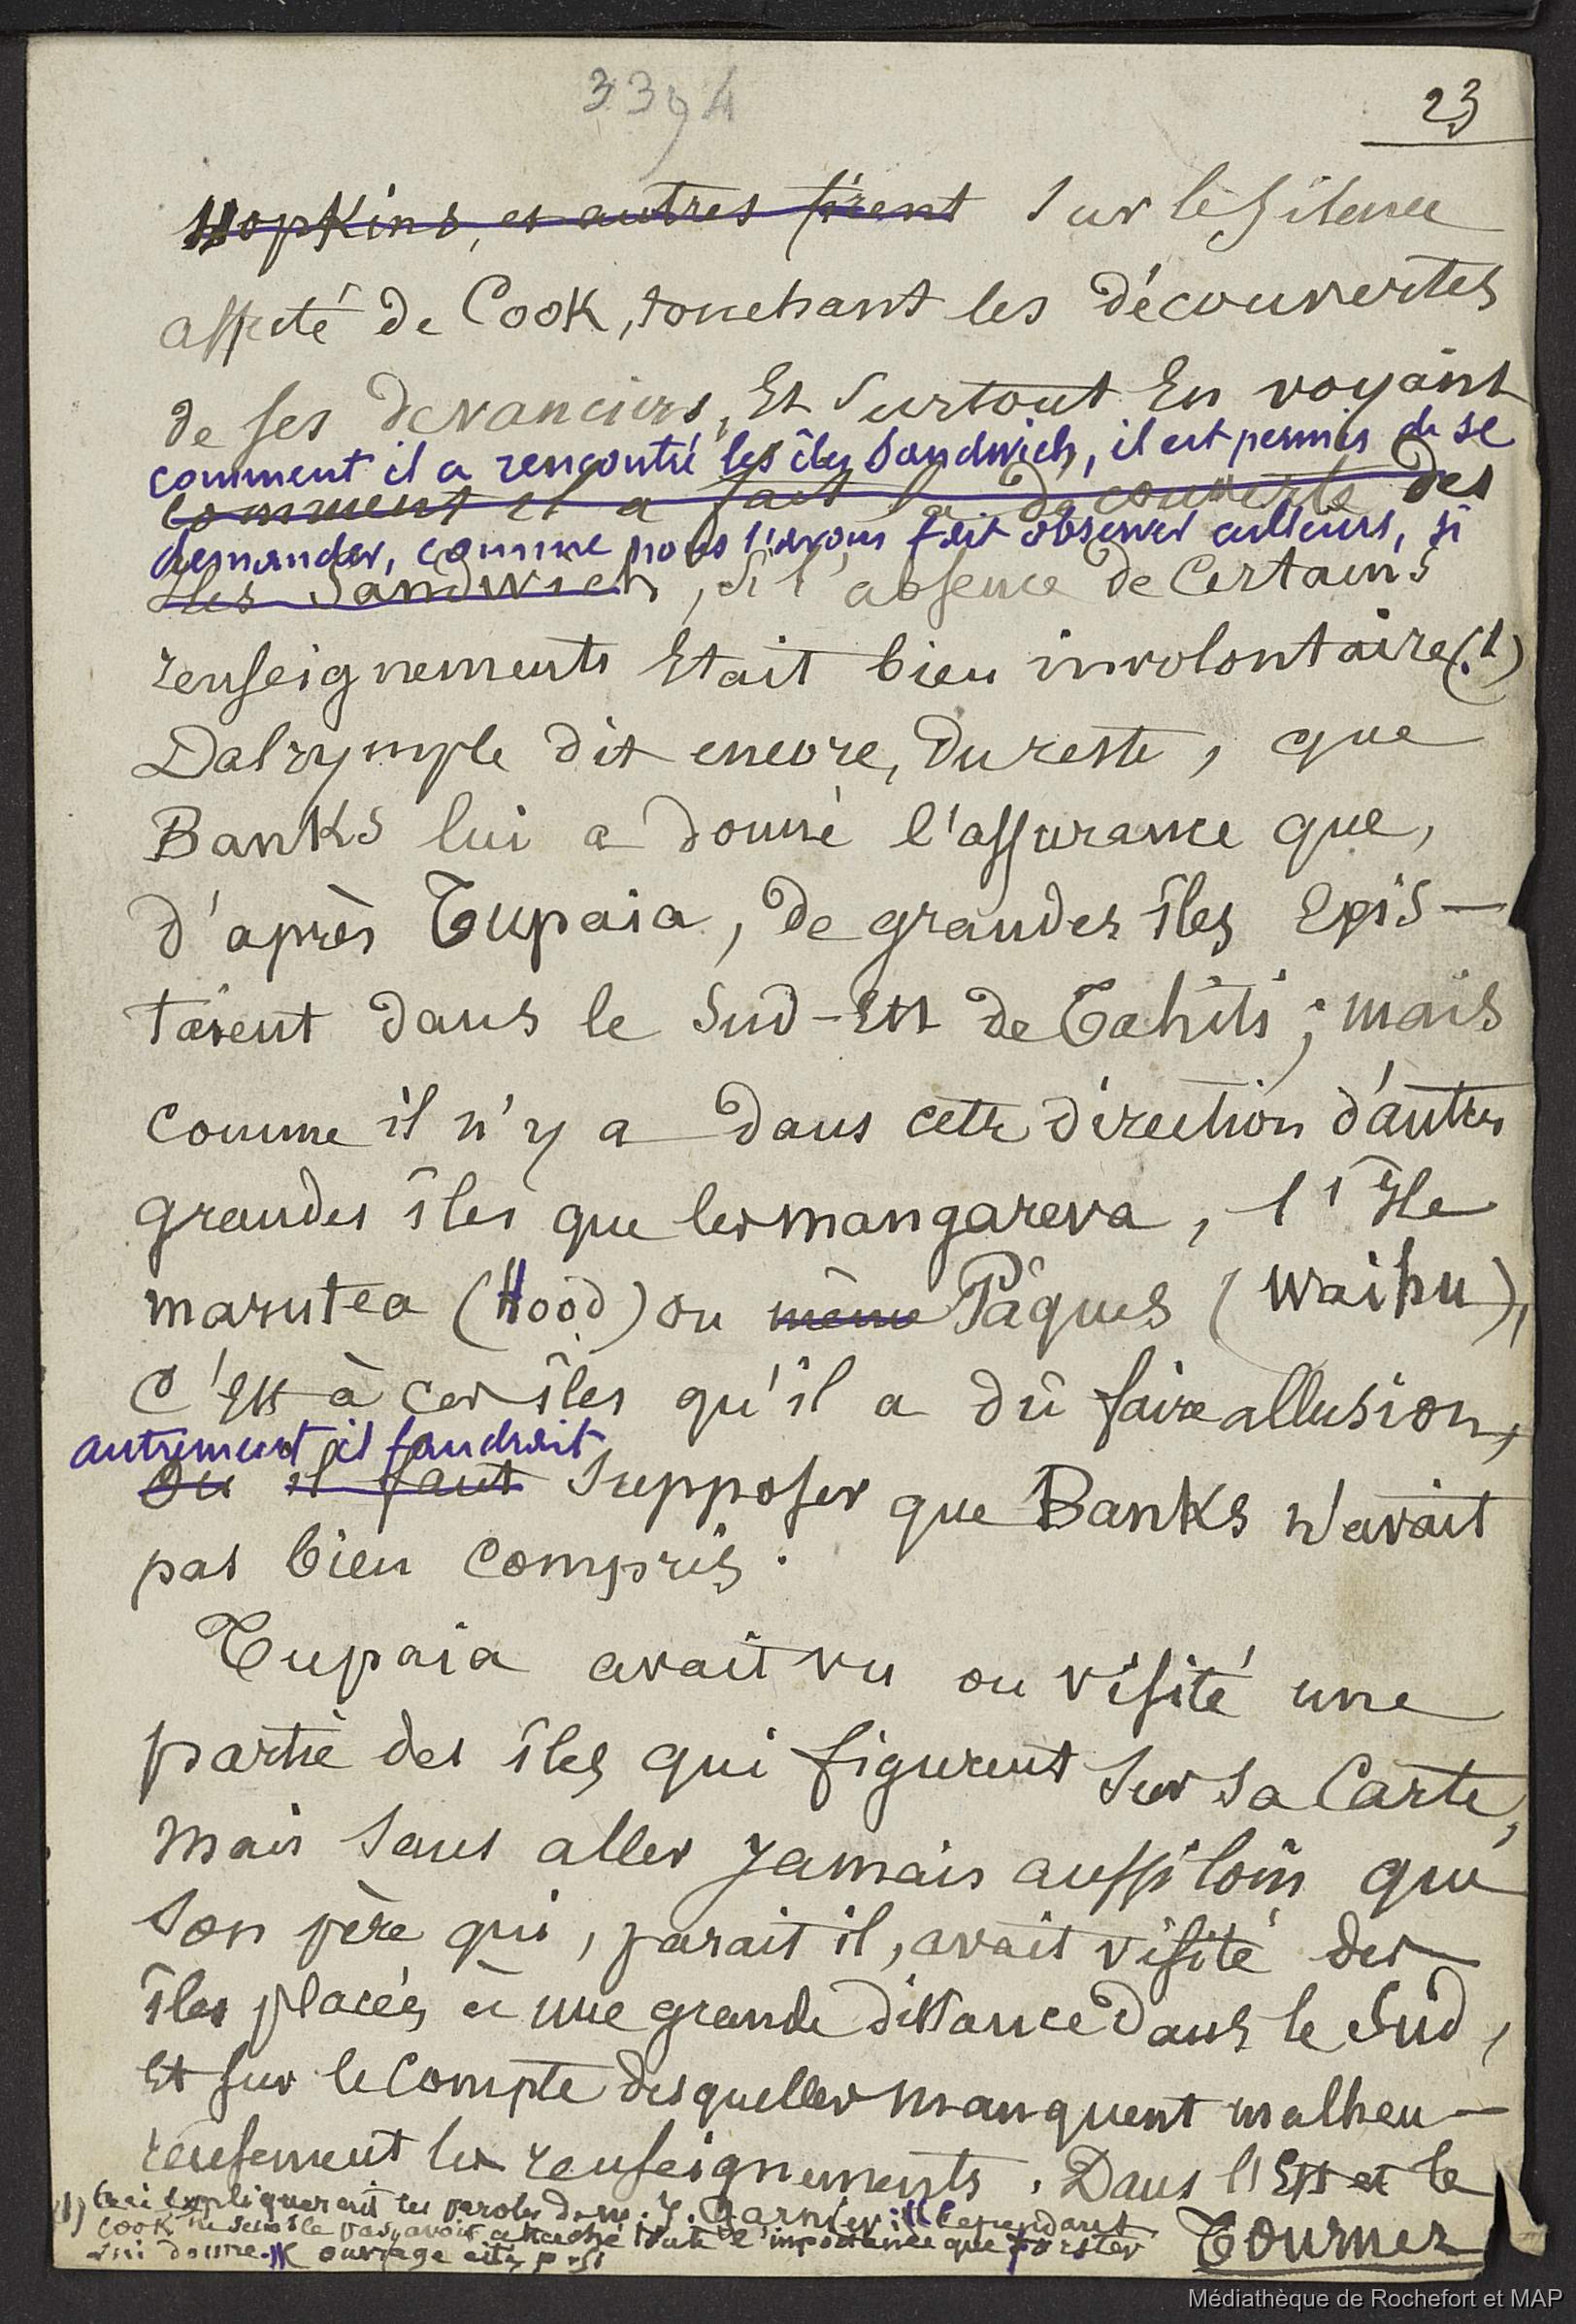 3394
23
Hopkins, et autres firent sur le silence
affecté de Cook, touchant les découvertes
de ses devanciers, Et surtout En voyant
comment il a rencontré les îles Sandwich, il est permis de se
comment il a fait la découverte des
demander, comme nous l'avons fait observer ailleurs, si
Iles Sandwich, si l'absence de Certains
renseignements Etait bien involontaire (1)
Dalrymple dit encore, du reste, que
Banks lui a donné l'assurance que,
d'après Tupaia, de grandes îles Exis-
taient dans le Sud-Est de Tahiti ; mais
comme il n'y a dans cette direction d'autres
grandes îles que les mangareva, l'Ile
marutea (Hood) ou même Pâques (Waihu),
C'Est à ces îles qu'il a dû faire allusion,
autrement il faudrait
Ou il faut supposer que Banks n'avait
pas bien compris.
Tupaia avait vu ou visité une
partie des îles qui figurent sur sa Carte,
mais sans aller Jamais aussi loin que
son père qui, parait il, avait visité des
îles placées à une grande distance dans le Sud,
Et sur le Compte desquelles manquent malheu-
reusement les renseignements. Dans l'Est et le
(1) Ceci Expliquerait les paroles de m. J. Garnier : "Cependant
Cook ne semble pas avoir attaché toute l'importance que Forster
lui donne." ouvrage cité, p.
Tournez
Médiathèque de Rochefort et MAP